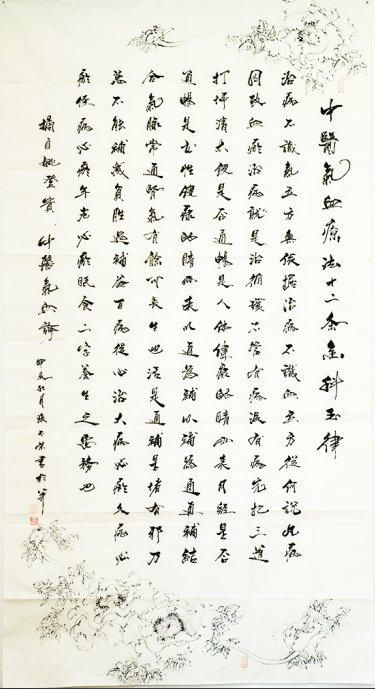 中醫氣血療法十二条金科玉律
治病不識氣立方無依據治病不識血立方從何說起病
因致血瘀治病就是治循環不管有病沒有病先把三道
打掃清大便是否通暢是人体健康的晴雨表月經是否
通暢是女性健康的晴雨表以通為補以補為通通補結
合氣脉常通腎氣有餘叫長生也活是通補是堵有邪乃
忌不能補減負勝過補益百病從心治大病必瘀久病必
瘀怪病必瘀年老必瘀眠食二字養生之要務也
摘自姚登寶中醫氣血論